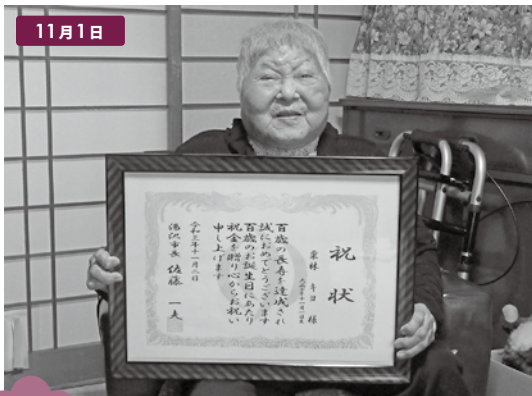 11月1日
祝状
栗林 キヨ 様
百歳の長寿を達成され
誠におめでとうございます
百歳のお誕生日にあたり
祝金を贈り心からお祝い
申し上げます
令和三年十一月一日
湯沢市長 佐藤 一夫